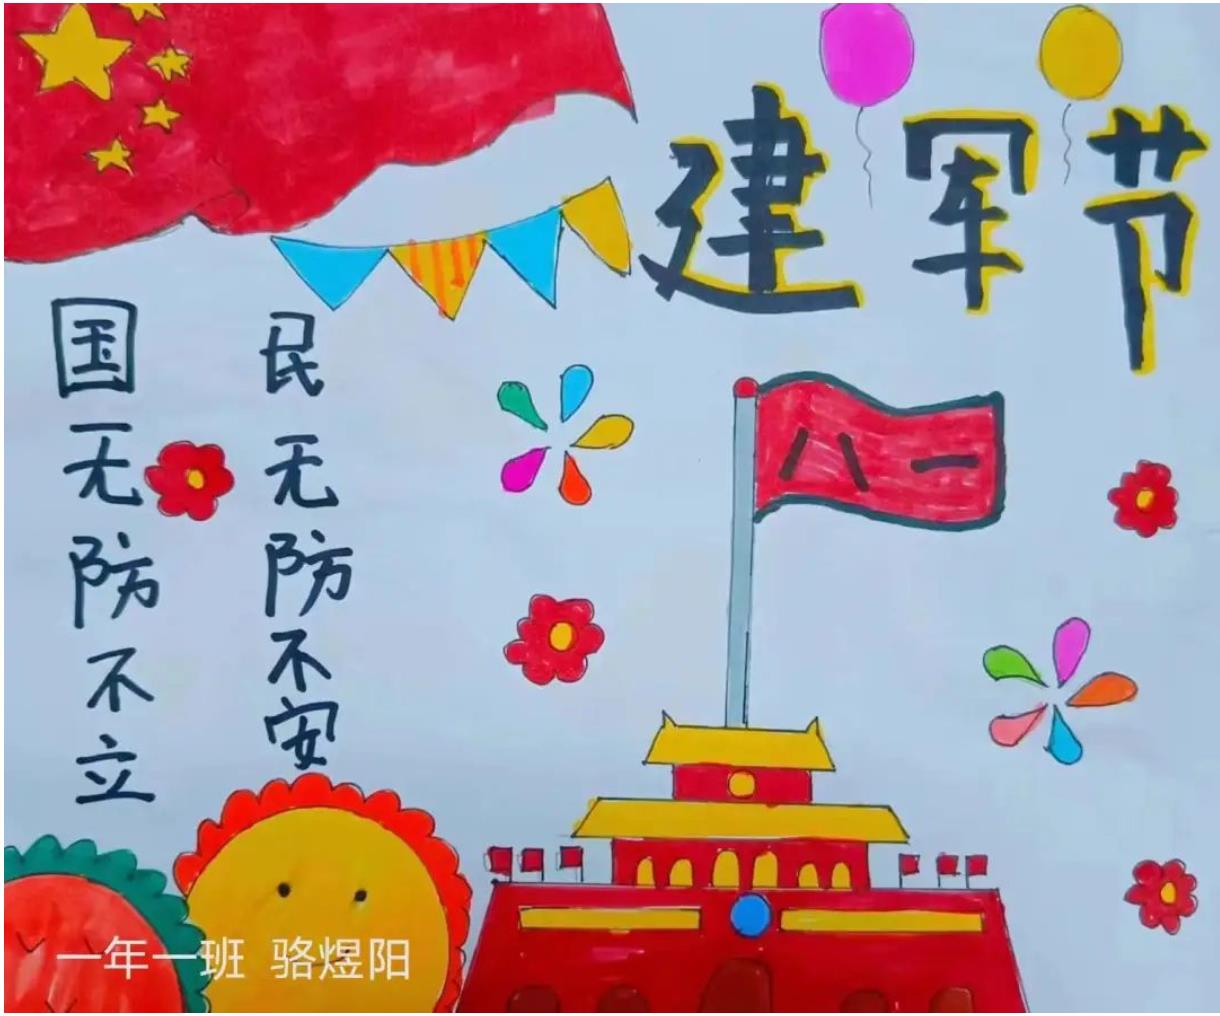 建军节
八一
国无防不立
民无防不安
一年一班 骆煜阳